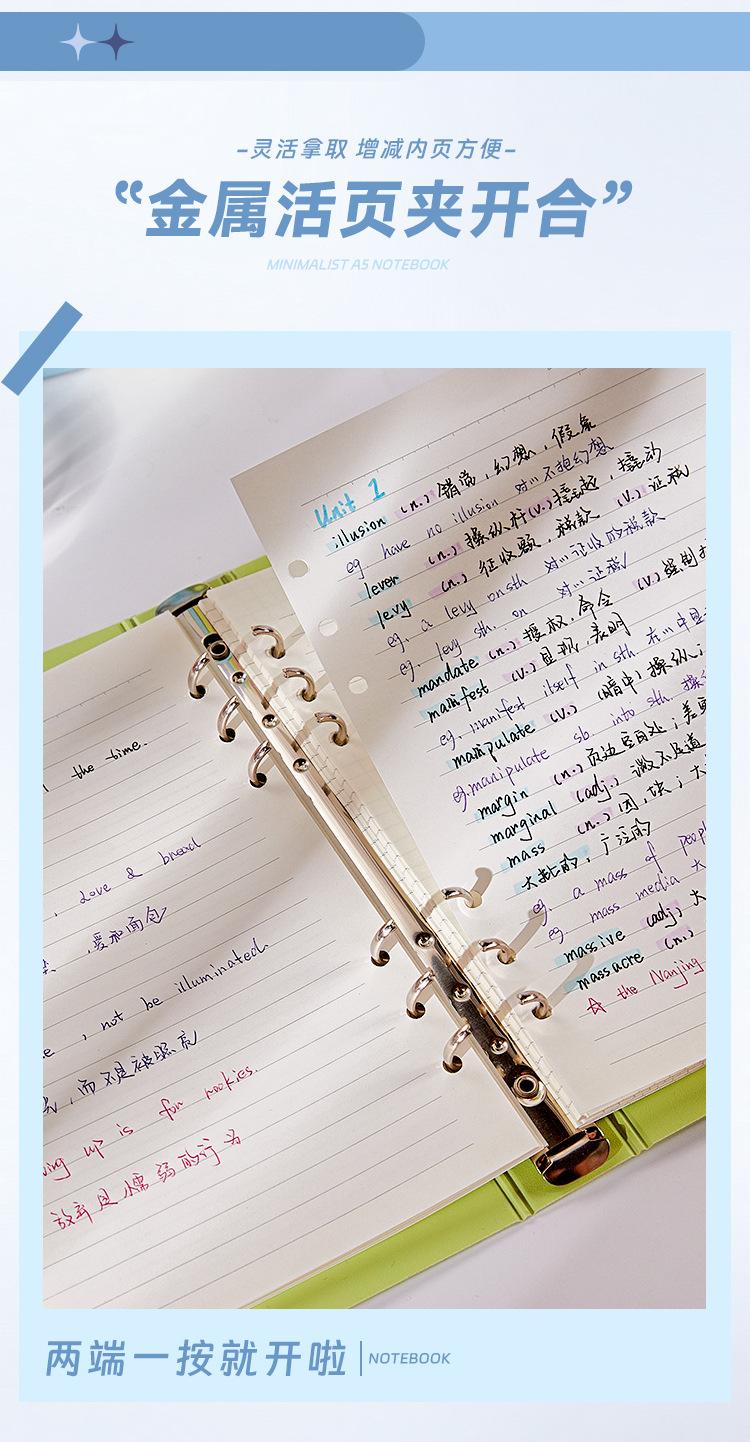 -灵活拿取 增减内页方便-
“金属活页夹开合”
MINIMALIST A5 NOTEBOOK
Unit 1
illusion (n.) 错觉，幻想，假象
eg. have no illusion 对…不抱幻想
lever (n.) 操纵杆 (v.) 撬起，撬动
levy (n.) 征收额，税款 (v.) 征税
eg. a levy on sth 对…征收的税款
eg. levy sth. on 对…征税
mandate (n.) 授权，命令 (v.) 强制
manifest (v.) 显现，表明
eg. manifest itself in sth. 在…中显
manipulate (v.) (暗中) 操纵；
eg. manipulate sb into sth. 操
margin (n.) 页边空白处；差
marginal (adj.) 微不足道
mass (n.) 团，块；大
大批的，广泛的
eg. a mass of peopl
eg. mass media 大
massive (adj.) 大
massacre (n.)
☆ the Nanjing
the time.
, Love & bread
，爱和面包
, not be illuminated.
，而不是被照亮
ving up is for rookies.
放弃是懦弱的行为
两端一按就开啦
NOTEBOOK